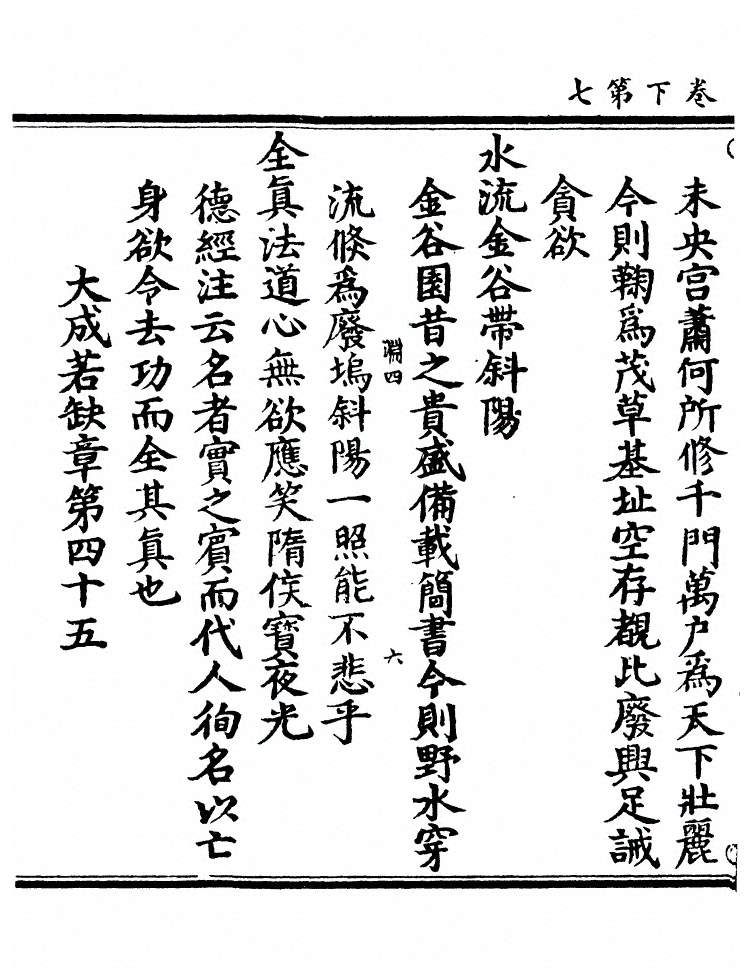 卷下第七
未央宫蕭何所修千門萬户爲天下壯麗
今則鞠爲茂草基址空存覩此廢興足誡
貪欲
水流金谷帶斜陽
金谷園昔之貴盛備載簡書今則野水穿
淵四
六
流倐爲廢塢斜陽一照能不悲乎
全眞法道心無欲應笑隋侯寶夜光
德經注云名者實之賓而代人徇名以亡
身欲令去功而全其眞也
大成若缺章第四十五